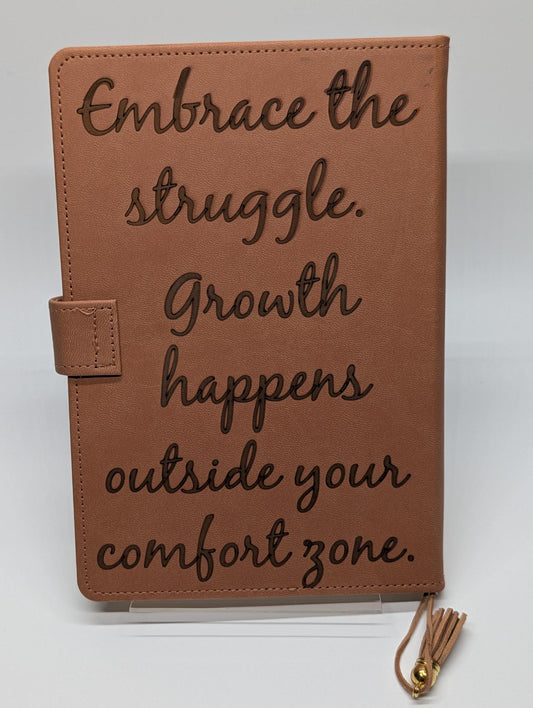 Embrace the
struggle.
Growth
happens
outside your
comfort zone.